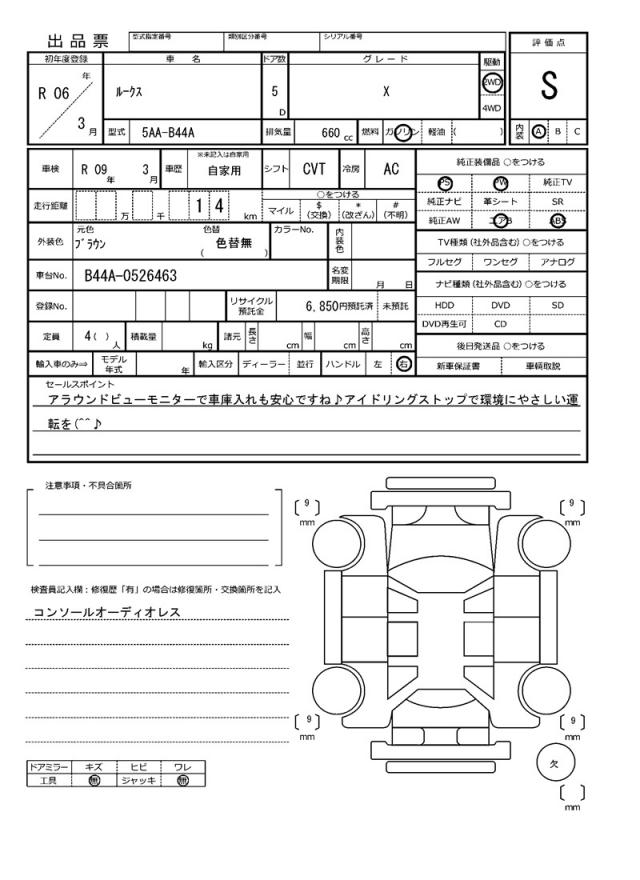 出品票 型式指定番号 類別区分番号 シリアル番号
評価点
S
内装 A B C
初年度登録 車名 ドア数 グレード 駆動
R 06 年 3 月 ルークス 5 D X 2WD 4WD
型式 5AA-B44A 排気量 660 cc 燃料 ガソリン 軽油 ( )
車検 R 09 年 3 月 車歴 ※未記入は自家用 自家用 シフト CVT 冷房 AC
走行距離 万 千 1 4 km ○をつける
マイル $ (交換) * (改ざん) # (不明)
外装色 元色 ブラウン 色替 色替無 ( ) カラーNo. 内装色
車台No. B44A-0526463 名変期限 月 日
登録No. リサイクル預託金 6,850円預託済 未預託
定員 4 ( ) 人 積載量 kg 諸元 長さ cm 幅 cm 高さ cm
輸入車のみ⇒ モデル年式 年 輸入区分 ディーラー 並行 ハンドル 左 右
純正装備品 ○をつける
PS PW 純正TV
純正ナビ 革シート SR
純正AW エアB ABS
TV種類 (社外品含む) ○をつける
フルセグ ワンセグ アナログ
ナビ種類 (社外品含む) ○をつける
HDD DVD SD
DVD再生可 CD
後日発送品 ○をつける
新車保証書 車輌取説
セールスポイント
アラウンドビューモニターで車庫入れも安心ですね♪アイドリングストップで環境にやさしい運
転を(^^♪
注意事項・不具合箇所
検査員記入欄：修復歴「有」の場合は修復箇所・交換箇所を記入
コンソールオーディオレス
ドアミラー キズ ヒビ ワレ
工具 無 ジャッキ 無
9 mm
9 mm
9 mm
9 mm
欠
mm